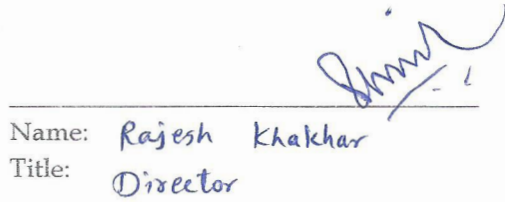 Name: Rajesh Khakhar
Title: Director